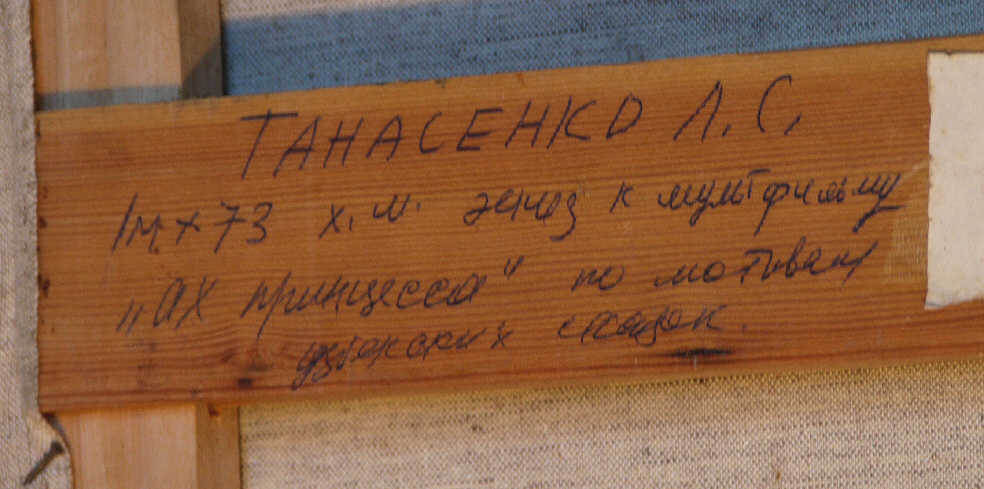 ТАНАСЕНКО Л.С.
1м х 73 х.м. эскиз к мультфильму
„Ах принцесса" по мотивам
узбекских сказок.